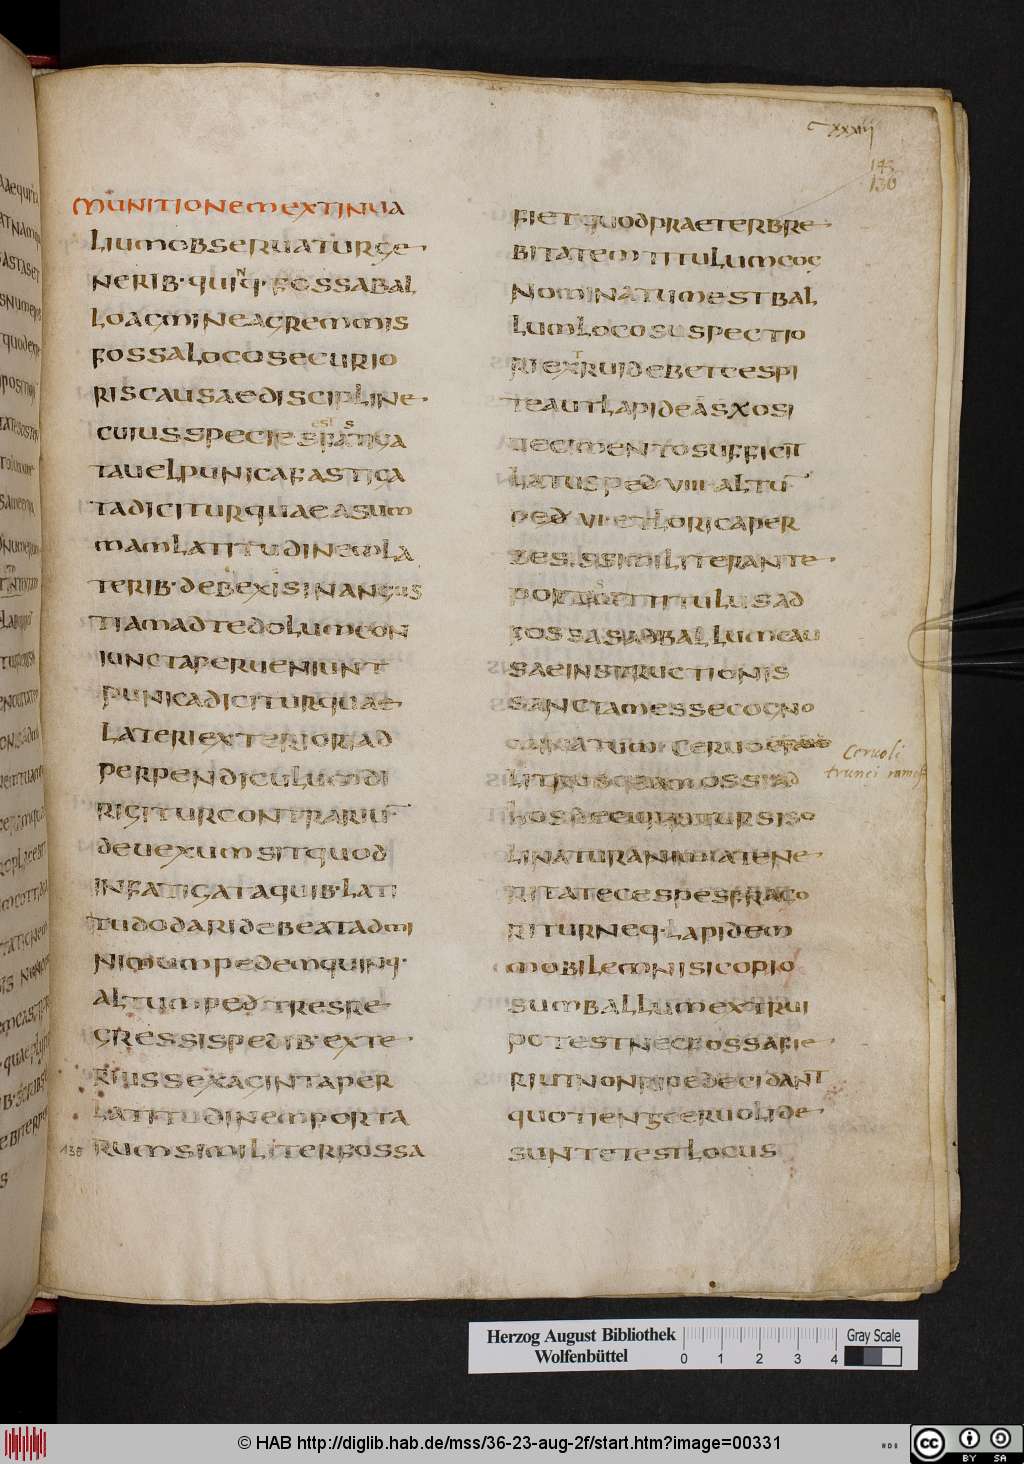 cxxxiij
143
130
MUNITIONEMEXTINUA
LIUMOBSERUATURGE
NERIB·QUINQ·FOSSABAL
LOAGMINEAGREMMIS
FOSSALOCOSECURIO
RISCAUSAEDISCIPLINE·
CUIUSSPECIES
TAUELPUNICAFASTIGA
TADICITURQUAEASUM
MAMLATITUDINEMLA
TERIB·DEBEXISINANGUS
TIAMADTEDOLUMCON
IUNCTAPERUENIUNT
PUNICADICITURQUAE
LATERIEXTERIORIAD
PERPENDICULUMDI
RIGITURCONTRARIŪ
DEUEXUMSITQUOD
INFATIGATAQUIB·LATI
TUDODARIDEBEATADMI
NIMUMPEDEMQUINQ·
ALTUMPEDTRESRE
GRESSISPEDIB·EXTE
RIUSSEXAGINTAPER
LATITUDINEMPORTA
138 RUMSIMILITERFOSSA
FIETQUODPRAETERBRE
BITATEMTITULUMCOG
NOMINATUMESTBAL
LUMLOCOSUSPECTIO
RIEXTRUIDEBETCESPI
TEAUTLAPIDEASXOSI
UECIMENTOSUFFICIT
LATUSPEDVIIIALTŪ
PEDVI·ETLORICAPER
BES·SSIMILITERANTE
PORTASTITULUSAD
FOSSASADBALLUMCAU
SAEINSTRUCTIONIS
SANCTAMESSECOGNO
Ceruoli
trunci ramosi
LINATURANIMIATENE
RITATECESPESFRACO
RITURNEQ·LAPIDEM
MOBILEMNISICOPIO
SUMBALLUMEXTRUI
POTESTNECFOSSAFIE
RIUTNONRIPEDECIDANT
QUOTIENSCERUOLIDE
SUNTETESTLOCUS
Herzog August Bibliothek
Wolfenbüttel
0 1 2 3 4
Gray Scale
© HAB http://diglib.hab.de/mss/36-23-aug-2f/start.htm?image=00331
HAB
cc BY SA